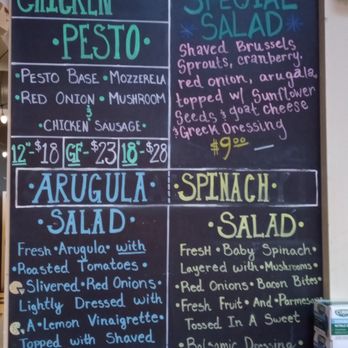 CHICKEN
• PESTO •
• PESTO BASE • MOZZERELA
• RED ONION • MUSHROOM
&
CHICKEN SAUSAGE •
12"-$18 GF-$23 18"-$28
SPECIAL
SALAD
Shaved Brussels
Sprouts, cranberry,
red onion, arugala,
topped w/ Sunflower
Seeds, & goat cheese
& Greek Dressing
$9.00
• ARUGULA •
SALAD
FRESH • ARUGULA with
• ROASTED TOMATOES •
SLIVERED • RED ONIONS •
LIGHTLY DRESSED WITH
• A • LEMON VINAIGRETTE •
TOPPED WITH SHAVED
• SPINACH •
SALAD •
FRESH • BABY SPINACH •
LAYERED WITH • MUSHROOMS •
RED ONIONS • BACON BITES •
FRESH FRUIT AND PARMESAN
TOSSED IN A SWEET
• BALSAMIC DRESSING •